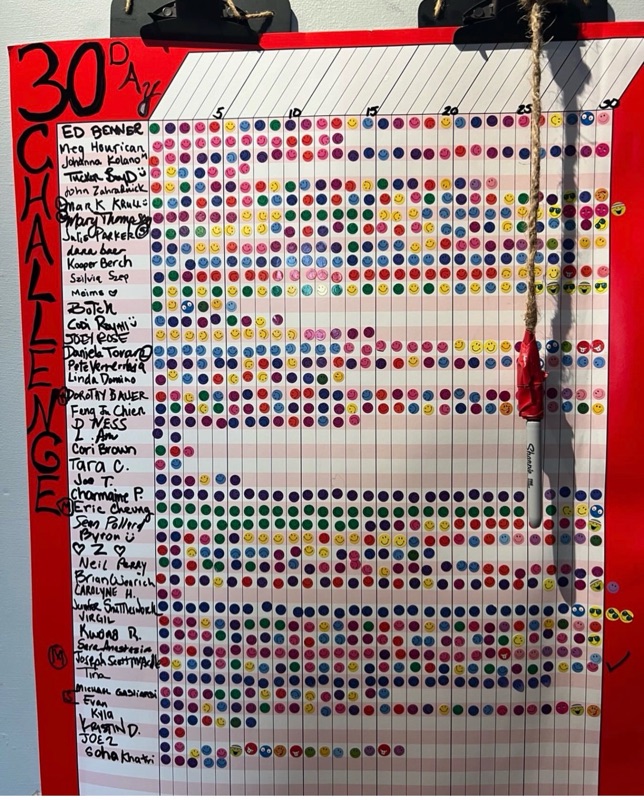 30 DAY
CHALLENGE
5 10 15 20 25 30
ED BENNER
Meg Hourican
Johanna Kolano
Tucker Boyd
John Zahradnick
Mark Krull
Mary Thomas
Julie PARKER
dana baer
Kooper Berch
Szilvia Szep
Meims
Botch
Codi Raymi
JODY ROSE
Daniela Tovar
Pete
Linda Domino
DOROTHY BAUER
Feng Ju Chien
D NESS
L. Am
Cori Brown
Tara C.
Joe T.
Charmaine P.
Eric Cheung
Sean Pollard
Byron
♡ Z ♡
Neil PERRY
Brian
CAROLYNE H.
Junior
VIRGIL
Kwong R.
Sara
Joseph Scott
Tina
MICHAEL
Evan
Kyla
KRISTIN D.
JOEZ
Soha Khatri
Sharpie